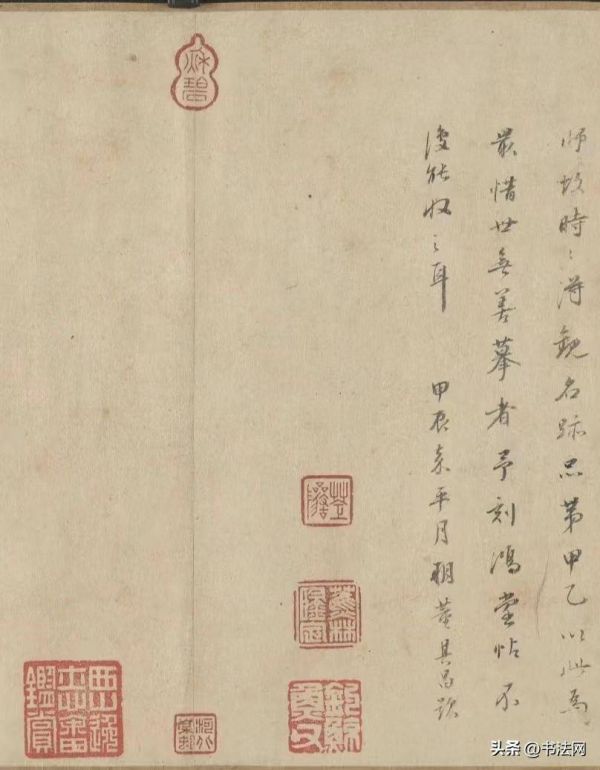 師故時〻得觀名跡品第甲乙以此為
最惜世無善摹者予刻鴻堂帖不
復能收之耳 甲辰嘉平月朔董其昌題
蕉林
鑑賞
头条 @书法网